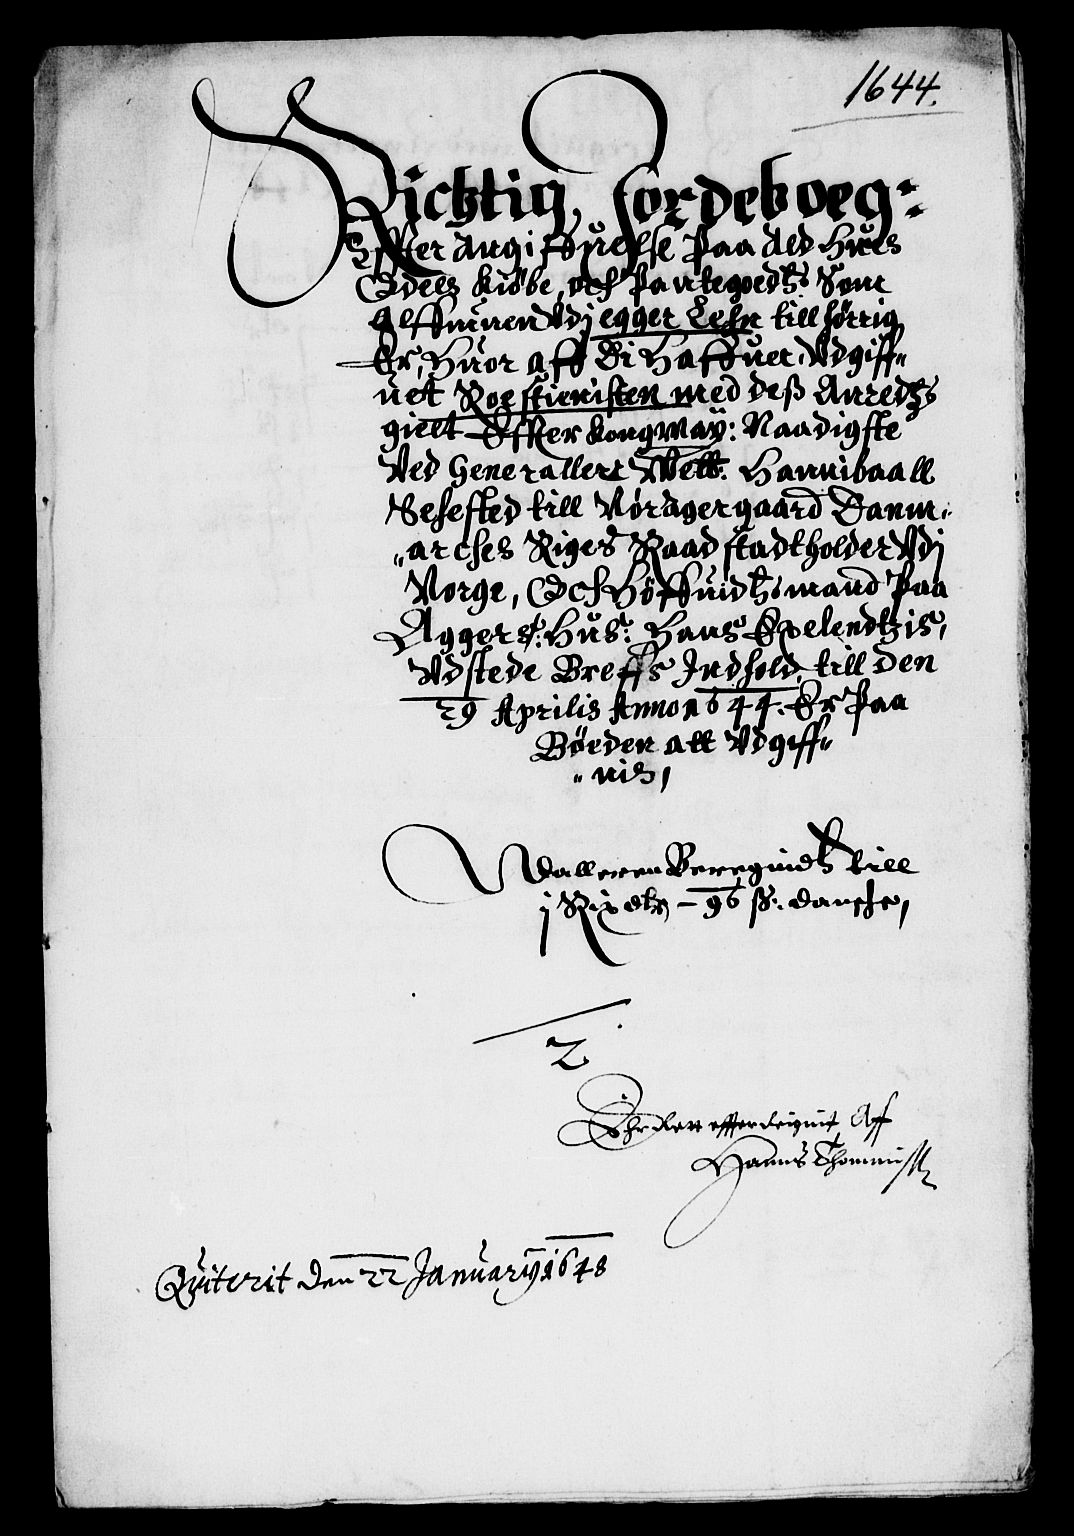 1644.
Richtig, Jordeboeg:
Effter Angiffuelsse Paa Ald Hues
Odels Kiøbe, och Pantegoedtz Som
Alffmuen Vdj egger Lehn till hörrig
Er, Huor aff Di Haffuer Vdgiff„
uet Roestienisten med deß Anredtz
gielt Effter Kong: May: Naadigste
Ved Generallert Welb: Hannibaall
Sehested till Nöragergaard Danm„
„arches Riges Raad stadtholder Vdj
Norge, Och Höffuidtzmand Paa
Aggers: Hus: Hans Exelendtzis,
Vdstede Breffs Indhold, till den
29 Aprilis Anno 1644. Er Paa
Böeden att Vdgiff„
„nis,
Vdalleren Beregnidtz till
j Rixdlr – 96 ß: dansche,
2
Hans Thommiß
Qviterit den 22 January 1648